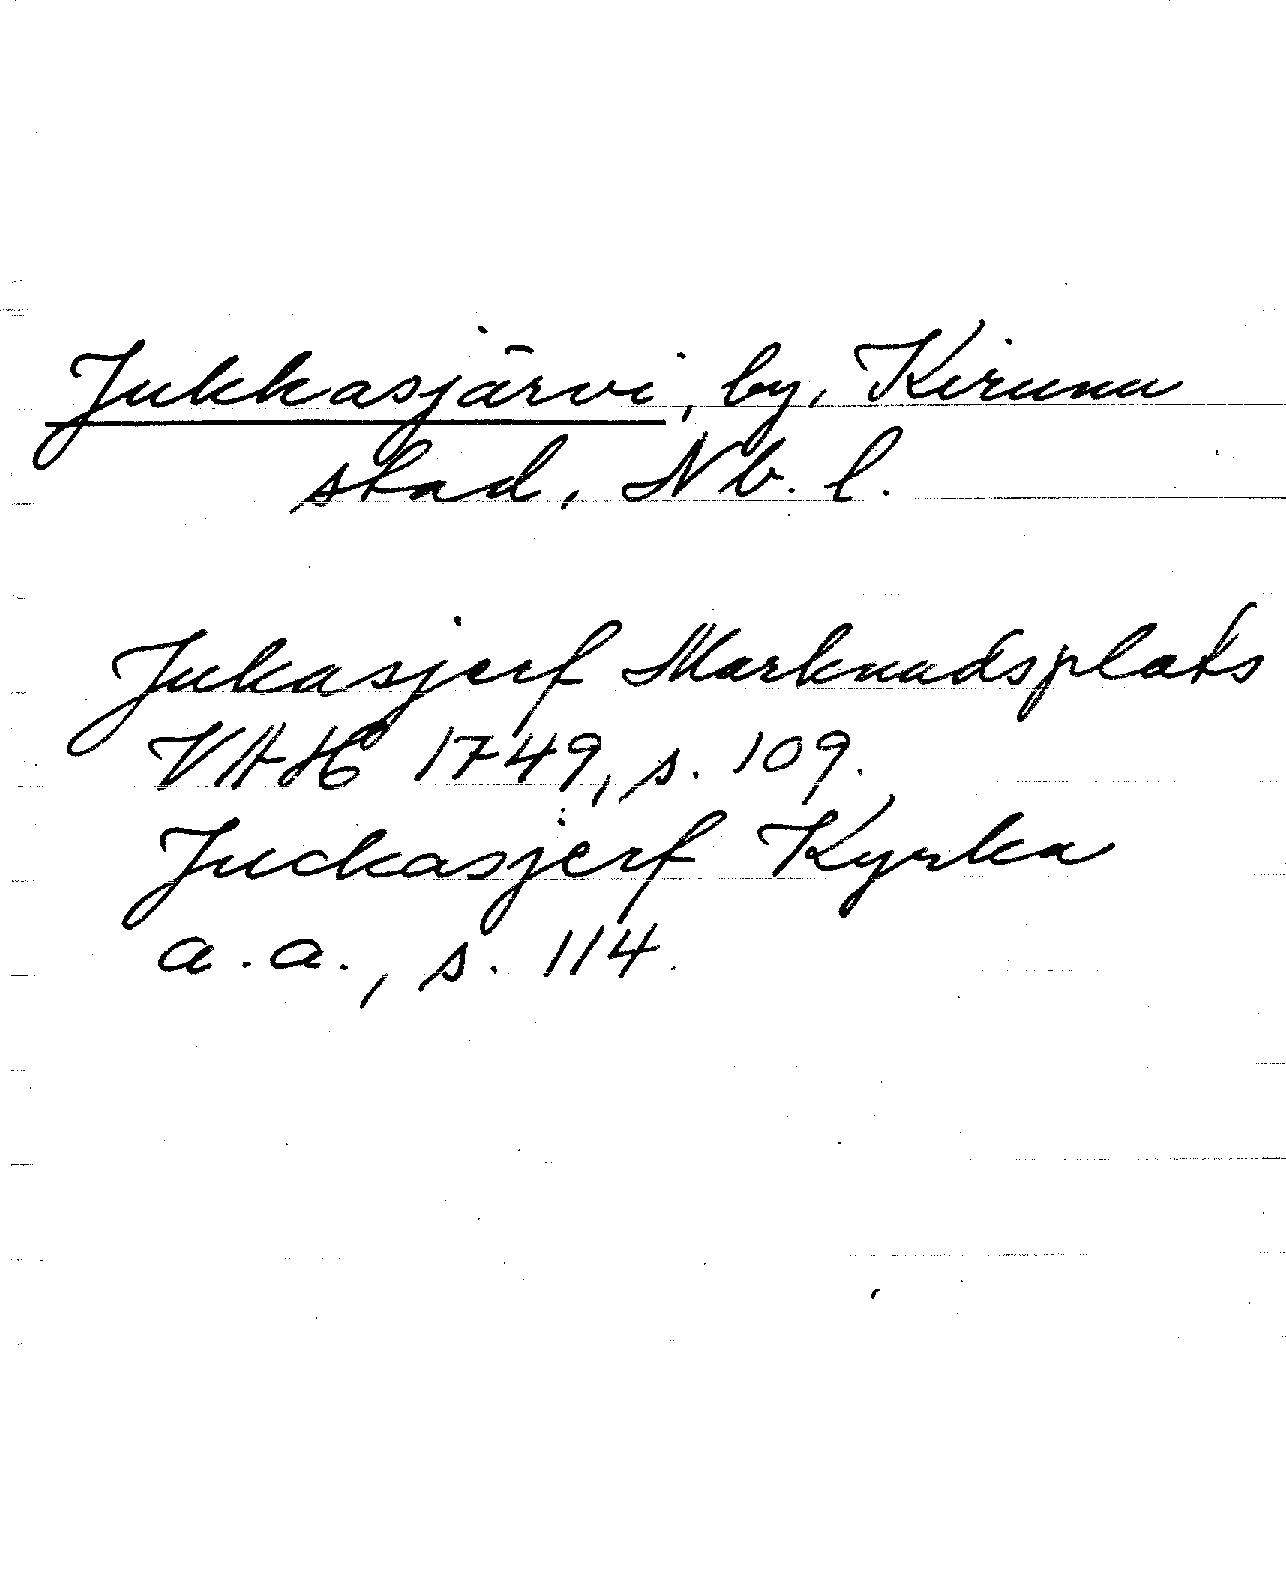 Jukkasjärvi, by, Kiruna
stad, Nb. l.
Jukasjerf Marknadsplats
VAH 1749, s. 109.
Juckasjerf Kyrka
a.a., s. 114.